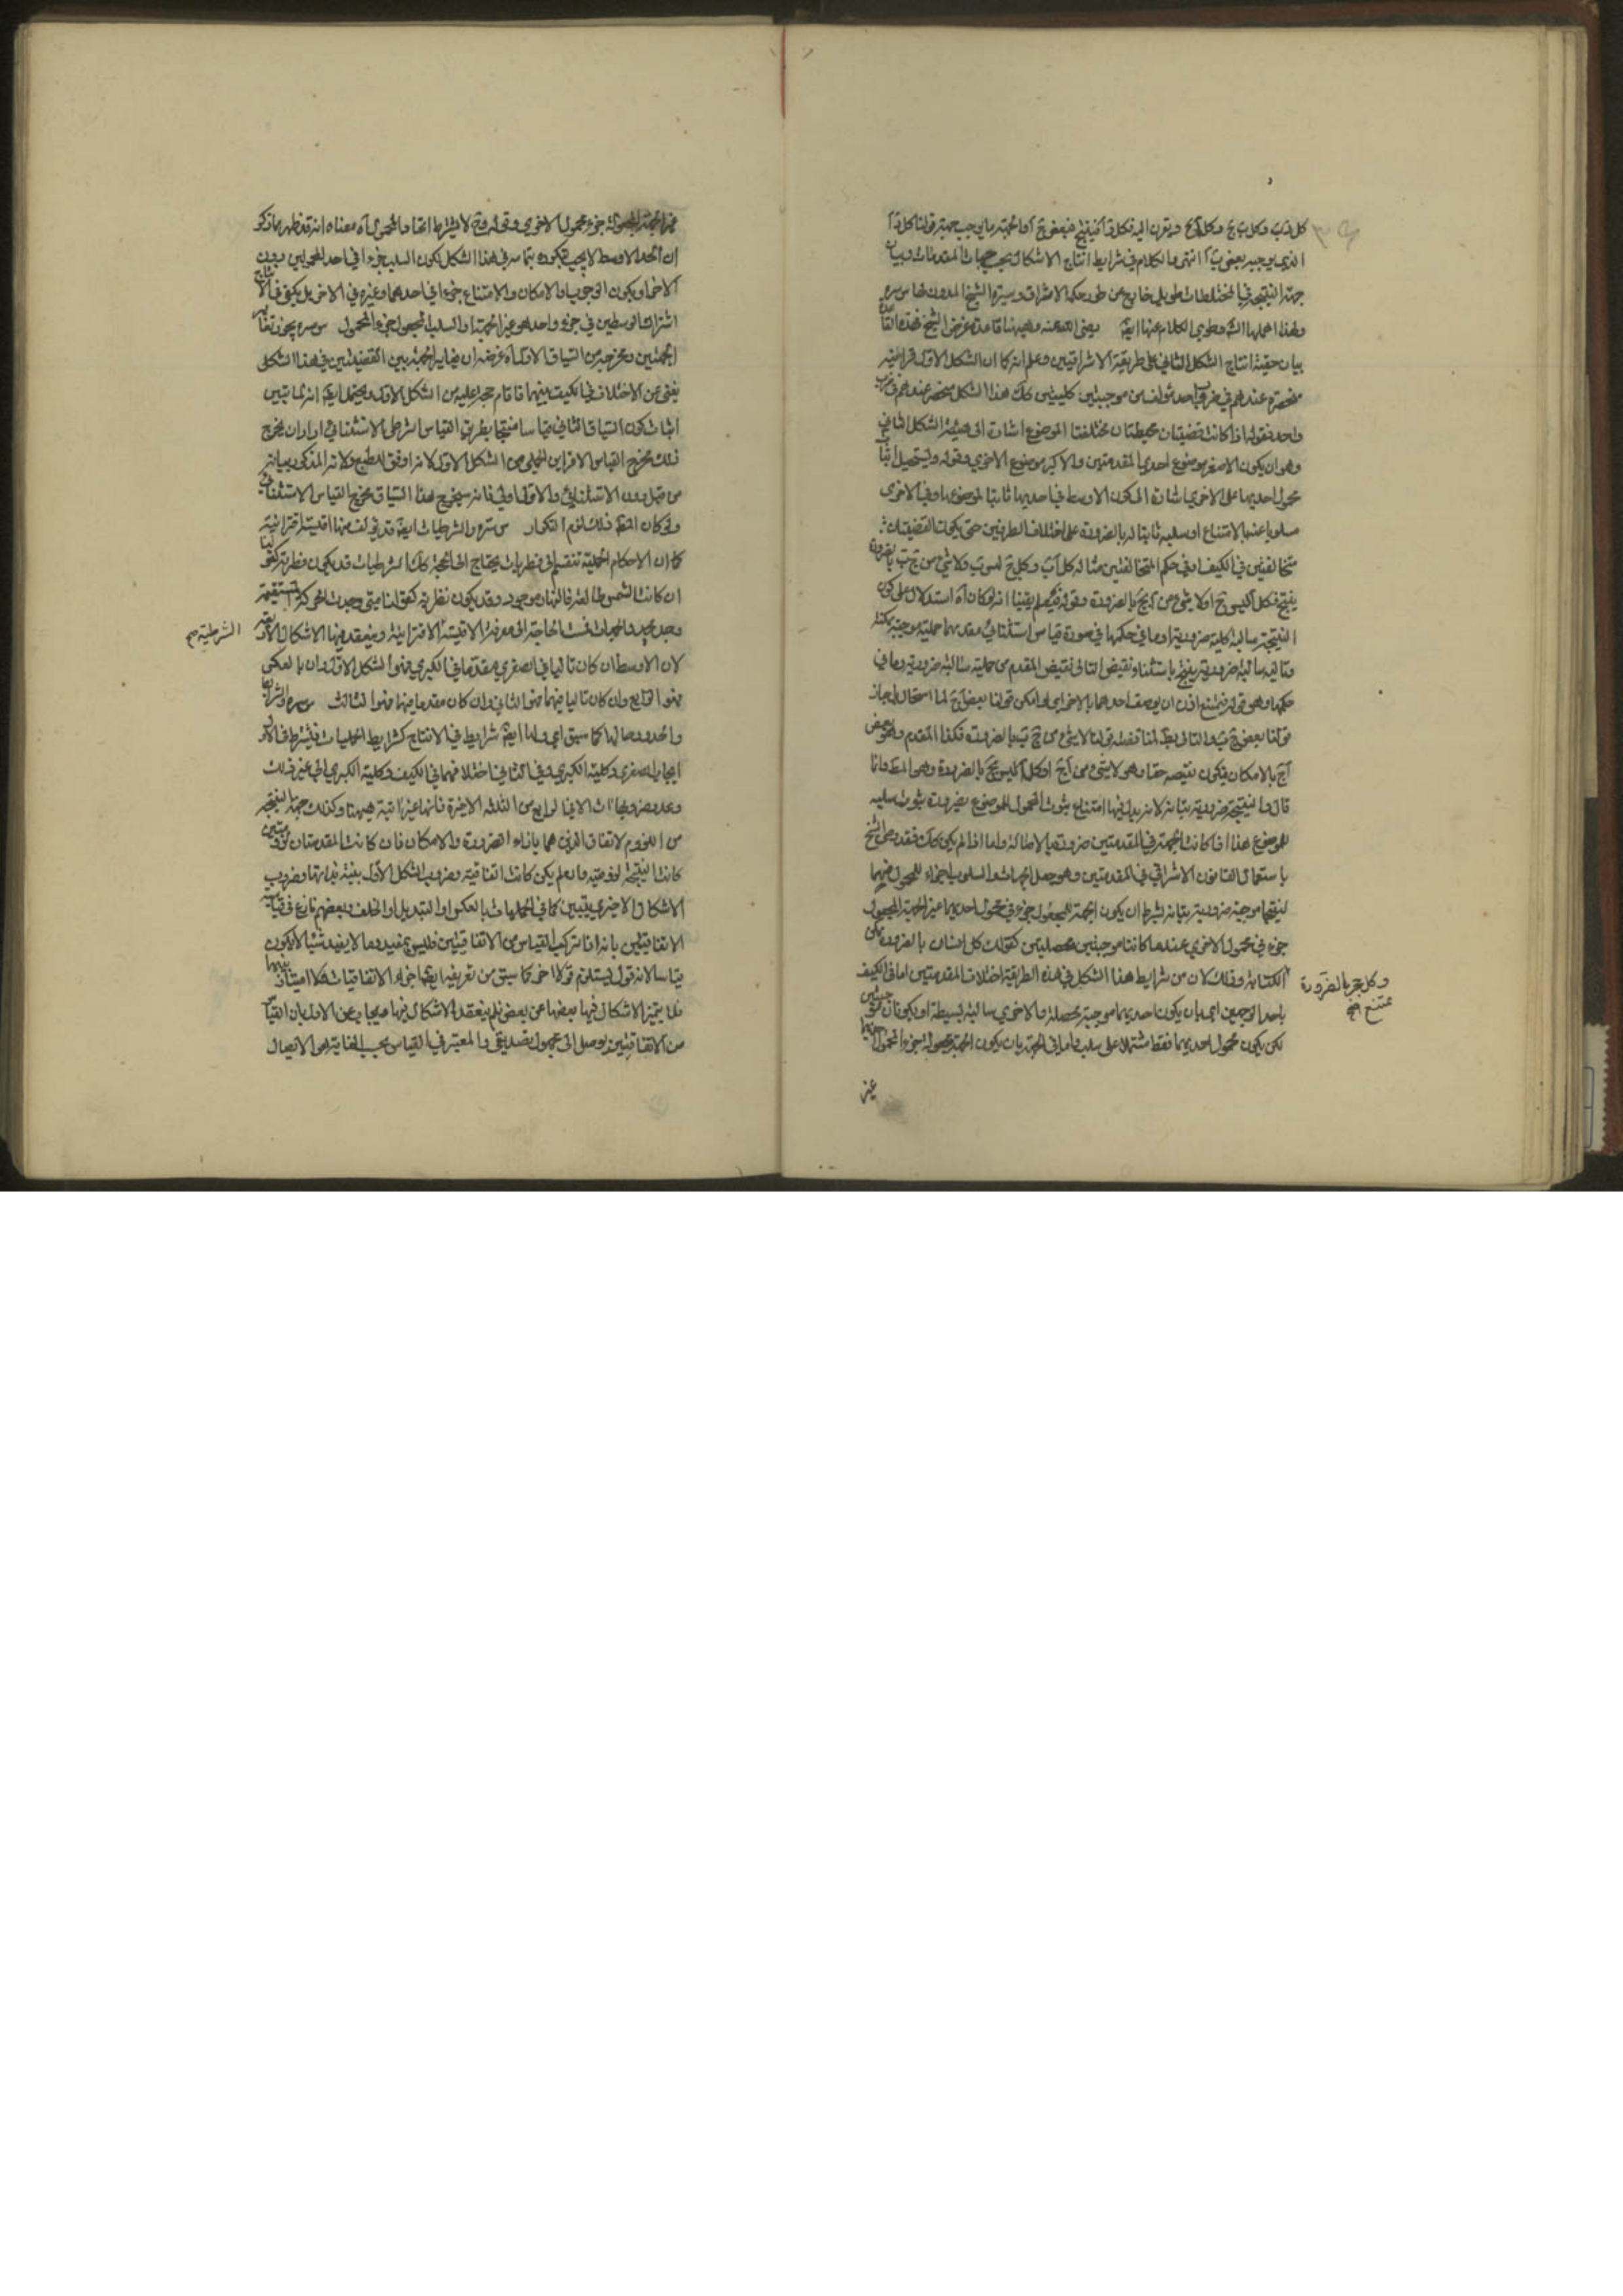 كل دب وكل ب ج وكل آج ويقرن اليه فكل د آ فينتج فبعض ج آ والجهة ما يوجب جهة قولنا كل د آ
الذي يوجبه بعض ب آ انتهى والكلام في شرايط انتاج الاشكال بحسب جهات المقدمات وبيان
جهة النتيجة في المختلطات طويل خارج عن طور حكمة الاشراق وسيرة الشيخ المدون لها س سره
ولهذا اهملها الشه وطوى الكلام عنها ايضه يعنى الله عنه وههنا قاعدة غرض الشيخ بهذه القاعدة
بيان حقيقة انتاج الشكل الثاني على طريقة الاشراقيين وعلم انه كما ان الشكل الاول قرائنه
منحصره عندهم في ضرب واحد مؤلف من موجبتين كليتين كك هذا الشكل منحصر عندهم في ضرب
واحد فقوله اذا كانت قضيتان محيطتان مختلفتا الموضوع اشارة الى هيئة الشكل الثاني
وهو ان يكون الاصغر موضوع احدى المقدمتين والاكبر موضوع الاخرى وقوله ويستحيل اثبات
محمول احديهما على الاخرى اشارة الى كون الاوسط في احديهما ثابتا لموضوعها وفي الاخرى
مسلوبا عنه بالامتناع او سلبه ثابتا له بالضرورة على اختلاف الطرفين حتى يكون القضيتان
متخالفتين في الكيف او في حكم المتخالفتين مثاله كل آب وكل ج ليس ب ولا شئ من ج ب بالضرورة
ينتج فكل آ ليس ج او لا شئ من آ ج بالضرورة وقوله فيعلم يقينا انه لو كان آه استدلال على كون
النتيجة سالبة كلية ضرورية او ما في حكمها في صورة قياس استثنائي مقدمها حملية موجبة ممكنة
وتاليه سالبة ضرورية ينتج باستثناء نقيض التالى نقيض المقدم من حملية سالبة ضرورية وما في
حكمها وهو قوله فيمتنع اذن ان يوصف احدهما بالاخر اي لو امكن قولنا بعض آج لما استحال بل جاز
قولنا بعض ج ب والتالى بط لمناقضته قولنا لا شئ من ج ب بالضرورة فكذا المقدم وهو بعض
آج بالامكان فيكون نقيضه حقا وهو لا شئ من آج او كل آ ليس ج بالضرورة وهو المط وانما
قال والنتيجة ضرورية بتاتة لانه يدل فيها امتناع ثبوت المحمول للموضوع بضرورة ثبوت سلبه
للموضوع هذا اذا كانت الجهة في المقدمتين ضرورة بالاصالة واما اذا لم يكن كك فقد وصى الشيخ
باستعمال القانون الاشراقي في المقدمتين وهو جعل الجهات والسلوب اجزاء للمحمول فيهما
لينتجا موجبة ضرورية بتاتة بشرط ان يكون الجهة المجعولة جزء في محمول احديهما غير الجهة المجعولة
جزء في محمول الاخرى عندما كانتا موجبتين محصلتين كقولك كل انسان بالضرورة ممكن
الكتابة وذلك لان من شرايط هذا الشكل في هذه الطريقة اختلاف المقدمتين اما في الكيف
وكل حجر بالضرورة
ممتنع صح
باحد الوجهين اي بان يكون احديهما موجبة محصلة والاخرى سالبة بسيطة او يكونان موجبتين
لكن يكون محمول احديهما فقط مشتملا على سلب واما في الجهة بان يكون الجهة المجعولة جزء المحمول احديهما
غير
غير الجهة المجعولة جزء محمول الاخرى وقوله وقد لا يشترط اتحاد المحمول آه معناه انه قد ظهر مما ذكر
ان الحد الاوسط لا يجب تكرره بتمامه في هذا الشكل لكون السلب جزءا في احد المحمولين دون
الاخر او يكون الوجوب او الامكان والامتناع جزءا في احدهما وغيره في الاخر بل يكفى في الانتاج
اشتراك الوسطين في جزء واحد هو غير الجهة او السلب المجعول جزء المحمول س سره يجوز تغاير
الجهتين ومخرجه من السياق الاول آه غرضه ان تغاير الجهة بين القضيتين في هذا الشكل
يغنى عن الاختلاف في الكيف بينهما فاقام حجة عليه من الشكل الاول ويحتمل ايضه انه لما تبين
اثبات كون السياق الثاني قياسا منتجا بطريق القياس الشرطى الاستثنائي اراد ان يخرج
ذلك مخرج القياس الاقتراني الحملى من الشكل الاول لانه اوفق للطبع ولانه المذكور بيانه
من قبل دون الاستثنائي والاول اولى فانه سيخرج هذا السياق مخرج القياس الاستثنائي
ولو كان المقصود ذلك لزم التكرار س سره والشرطيات ايضه قد يؤلف منها اقيسة اقترانية
كما ان الاحكام الحملية تنقسم الى نظريات يحتاج الى الحجة كك الشرطيات قد يكون فطرية كقولنا
ان كانت الشمس طالعة فالنهار موجود وقد يكون نظرية كقولنا متى وجدت الحركة المستقيمة
وجد محدد الجهات فمست الحاجة الى معرفة الاقيسة الاقترانية وينعقد فيها الاشكال الاربعة
الشرطية صح
لان الاوسط ان كان تاليا في الصغرى مقدما في الكبرى فهو الشكل الاول وان بالعكس
فهو الرابع وان كان تاليا فيهما فهو الثاني وان كان مقدما فيهما فهو الثالث س سره والشرايط
والحدود حالها كما سبق اي ولها ايضه شرايط في الانتاج كشرايط الحمليات فيشترط في الاول
ايجاب الصغرى وكلية الكبرى وفي الثاني اختلافهما في الكيف وكلية الكبرى الى غير ذلك
وعدد ضروبها الا الرابع من الثلثة الاخيرة فانها غير آتية ههنا وكذلك جهة النتيجة
من اللزوم والاتفاق الذين هما بازاء الضرورة والامكان فان كانت المقدمتان لزوميتين
كانت النتيجة لزومية وان لم يكن كانت اتفاقية وضروب الشكل الاول بينة بذاتها وضروب
الاشكال الاخرى يتبين كما في الحمليات بالعكس او التبديل او الخلف وبعضهم نازع في قياسية
الاتفاقيتين بانه اذا تركب القياس من الاتفاقيتين فليس بمفيد وما لا يفيد شيئا لا يكون
قياسا لانه قول يستلزم قولا اخر كما سبق من تعريفه ايضا اجزاء الاتفاقيات فلا امتياز بينها
فلا يتميز الاشكال فيها بعضها عن بعض فلم ينعقد الاشكال فيها واجيب عن الاول بان القياس
من الاتفاقيتين يوصل الى مجهول تصديقى والمعتبر في القياس بحسب الغاية هو الايصال